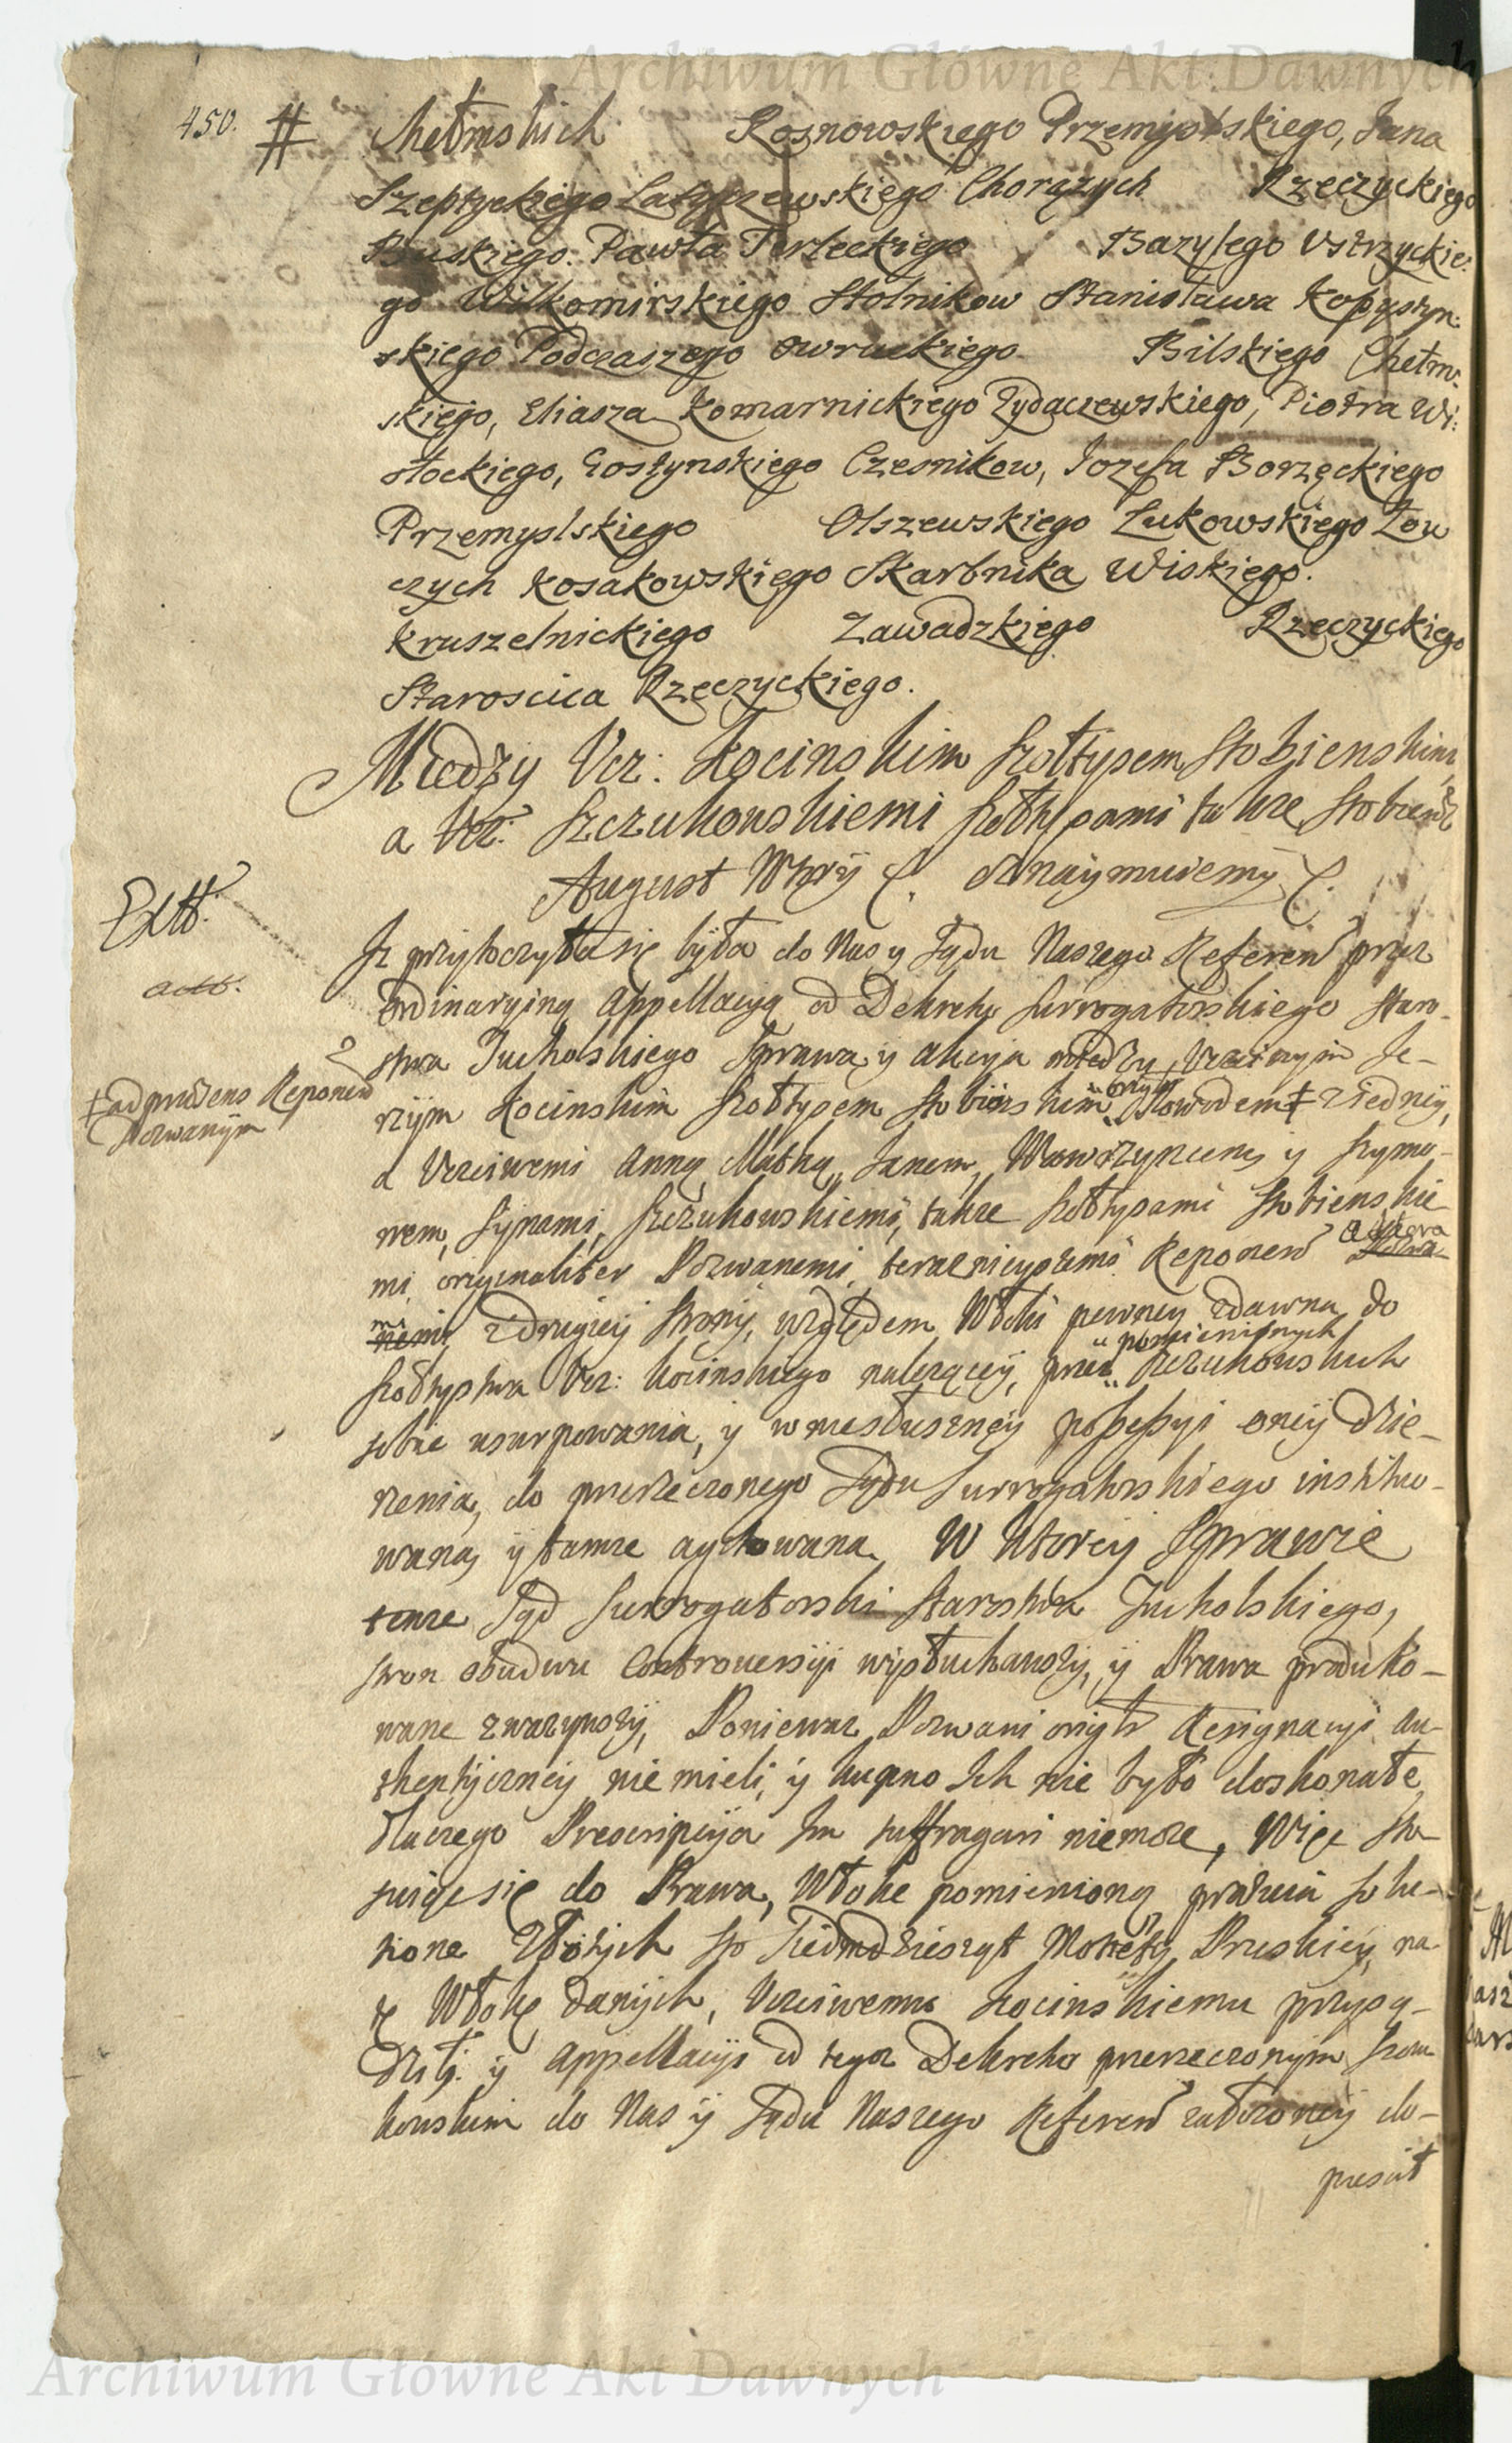 Archiwum Główne Akt Dawnych
450. # Chełmskich Rosnowskiego Przemyslskiego, Jana
Szeptyckiego Latyczewskiego Chorązych Rzeczyckiego
Buskiego. Pawła Terleckiego Bazylego Ustrzyckie:
go Wilkomirskiego Stolnikow Stanisława Kopystyn:
skiego Podczaszego Owruckiego Bilskiego Chełm:
skiego, Eliasza Komarnickiego Zydaczewskiego, Piotra Wi:
słockiego, Gostynskiego Czesnikow, Jozefa Borzęckiego
Przemyslskiego Olszewskiego Łukowskiego Łow
czych Kosakowskiego Skarbnika Wiskiego.
Kruszelnickiego Zawadzkiego Rzeczyckiego
Staroscica Rzeczyckiego.
Miedzy Ucz: Kocinskim Szołtysem Stobienskim
a Ucz: Szczukowskiemi Szołtysami takze Stobiens
August Wtory &. Oznaymuiemy &.
Extt.
Iz przytoczyła się była do Nas y Sądu Naszego Referen przez
actt.
Ordinaryiną Appellacyą od Dekretu Surrogatorskiego Staro-
stwa Tucholskiego Sprawa y Akcyia miedzy Uczciwym Je-
+ ad praesens Reponen
Pozwanym
rzym Kocinskim Szołtysem Stobienskim onym Powodem + z iedney,
a Uczciwemi Anną Matką, Janem, Wawrzyncem y Szymo-
nem, Synami, Szczukowskiemi, takze Szołtysami Stobienskie
mi originaliter Pozwanemi, teraznieyszemi Reponen Actora
mi z drugiey strony, względem Włoki pewney zdawna do
Szołtystwa Ucz: Kocinskiego nalezącey, przez pomienionych Szczukowskich
sobie usurpowania, y w niesłuszney possessyi oney dzie-
rzenia, do przerzeczonego Sądu Surrogatorskiego institu-
wana, y tamze agitowana. W Ktorey Sprawie
tenze Sąd Surrogatorski Starostwa Tucholskiego,
stron obudwu Controversyi wysłuchawszy, y Prawa produko-
wane zwazywszy, Poniewaz Pozwani onych Resignacyi Au-
thentyczney nie mieli, y kupno Ich nie było doskonałe,
dlaczego Preskripcyia Im suffragari niemoze, Więc sto
suiąc się do Prawa, Włoke pomienioną
Złotych sto siedmdziesząt Monety Pruskiey, na
tę Włokę danych, Uczciwemu Kocinskiemu przysą-
dził. y Appellacyi od tegoz Dekretu przerzeczonym Szczu
kowskim do Nas y Sądu Naszego Referen załozoney do-
puscił
Archiwum Główne Akt Dawnych